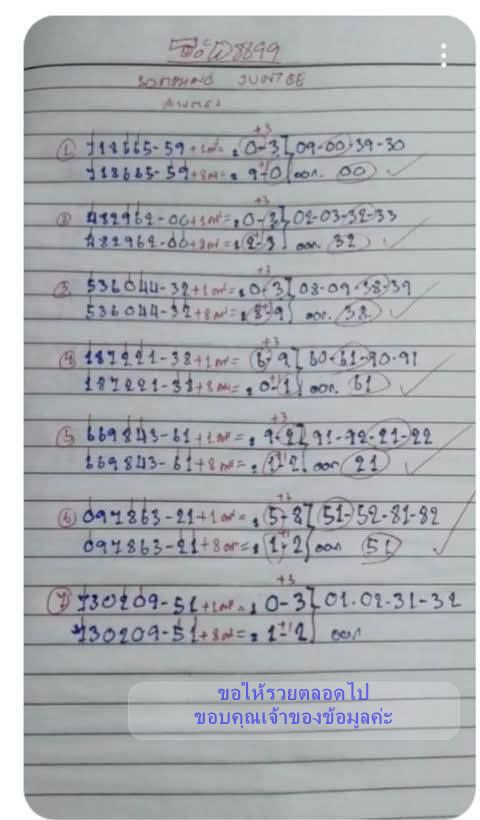 8899
SOMPHENG JUNTEE
+3
① 718665-59+1 = 0-3 09-00-39-30
718665-59+8 = 9-0 ออก. 00
+3
② 482962-00+1 = 0-3 02-03-32-33
482962-00+8 = 2-3 ออก. 32
+3
③ 536044-32+1 = 0-3 08-09-38-39
536044-32+8 = 8-9 ออก. 38
+3
④ 187221-38+1 = 6-9 60-61-90-91
187221-38+8 = 0-1 ออก. 61
+3
⑤ 669843-61+1 = 9-2 91-92-21-22
669843-61+8 = 1-2 ออก 21
+3
⑥ 097863-21+1 = 5-8 51-52-81-82
097863-21+8 = 1-2 ออก 51
+3
⑦ 730209-51+1 = 0-3 01-02-31-32
730209-51+8 = 1-2 ออก
ขอให้รวยตลอดไป
ขอบคุณเจ้าของข้อมูลค่ะ